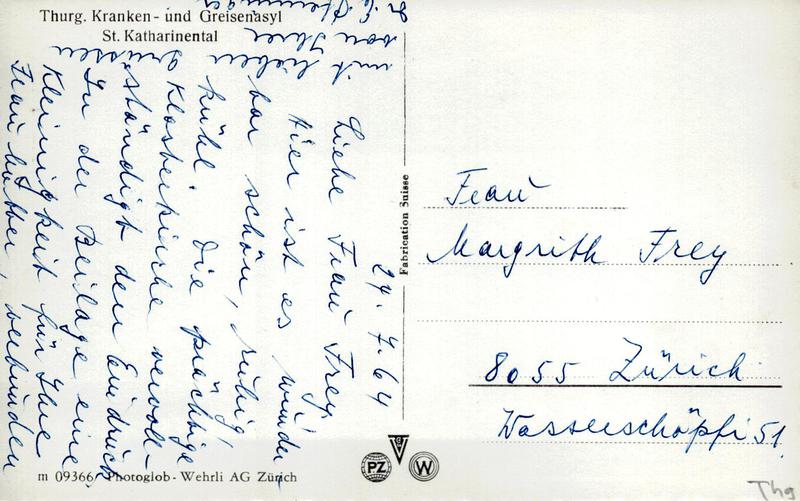 Thurg. Kranken- und Greisenasyl
St. Katharinental
24. 7. 64
Liebe Frau Frey,
Hier ist es wunder-
bar schön, ruhig,
kühl. Die prächtige
Klosterkirche vervoll-
ständigt den Eindruck
In der Beilage eine
Kleinigkeit für Ihre
Frau Mutter, verbunden
mit lieben
Grüssen
von Ihrer
Fabrication Suisse
Frau
Margrith Frey
8055 Zürich
Wasserschöpfi 51.
m 09366 Photoglob-Wehrli AG Zürich
PZ
W
Thg